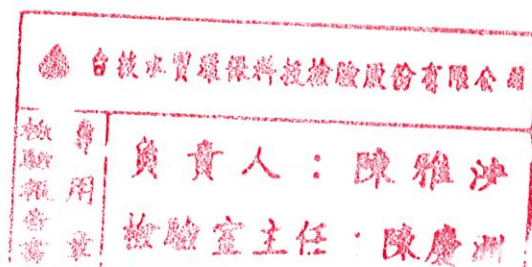 台技水質環保科技檢驗股份有限公司
檢驗報告專用章
負責人：陳雅
檢驗室主任：陳慶